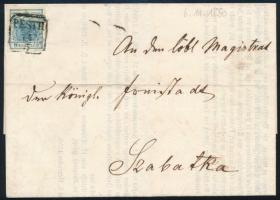 6.11.1850
PESTH
An den löbl Magistrat
der königl freistadt
Szabatka